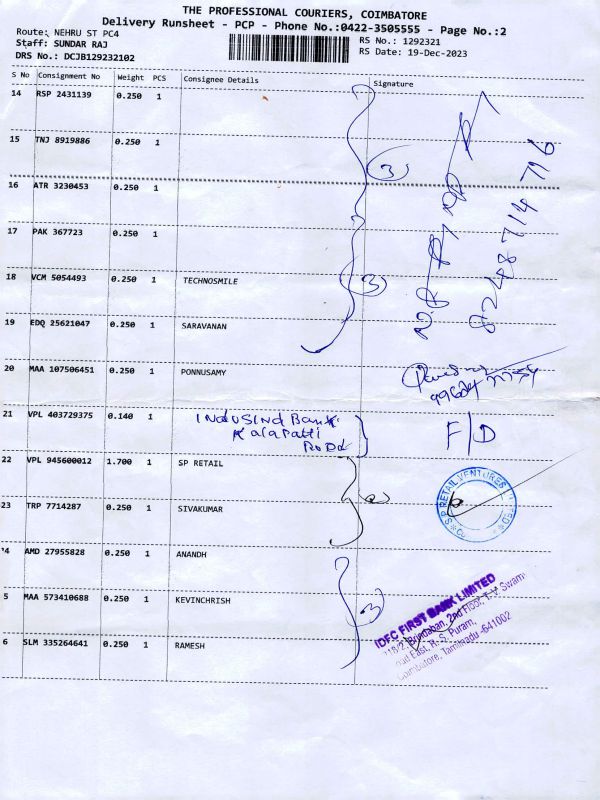 THE PROFESSIONAL COURIERS, COIMBATORE
Delivery Runsheet - PCP - Phone No.:0422-3505555 - Page No.:2
Route: NEHRU ST PC4
Staff: SUNDAR RAJ
DRS No.: DCJB129232102
RS No.: 1292321
RS Date: 19-Dec-2023
S No Consignment No Weight PCS Consignee Details Signature
14 RSP 2431139 0.250 1
15 TNJ 8919886 0.250 1
3
16 ATR 3230453 0.250 1
17 PAK 367723 0.250 1
18 VCM 5054493 0.250 1 TECHNOSMILE 3
8248714716
19 EDQ 25621047 0.250 1 SARAVANAN
20 MAA 107506451 0.250 1 PONNUSAMY
21 VPL 403729375 0.140 1 INDUSIND Bank
Kalapatti
Road
F/D
22 VPL 945600012 1.700 1 SP RETAIL
S.P RETAIL VENTURES
23 TRP 7714287 0.250 1 SIVAKUMAR
4 AMD 27955828 0.250 1 ANANDH
5 MAA 573410688 0.250 1 KEVINCHRISH 3
6 SLM 335264641 0.250 1 RAMESH
IDFC FIRST BANK LIMITED
Brindaban, 2nd Floor, T.V. Swamy
Road East, R. S. Puram,
Coimbatore, Tamilnadu -641002